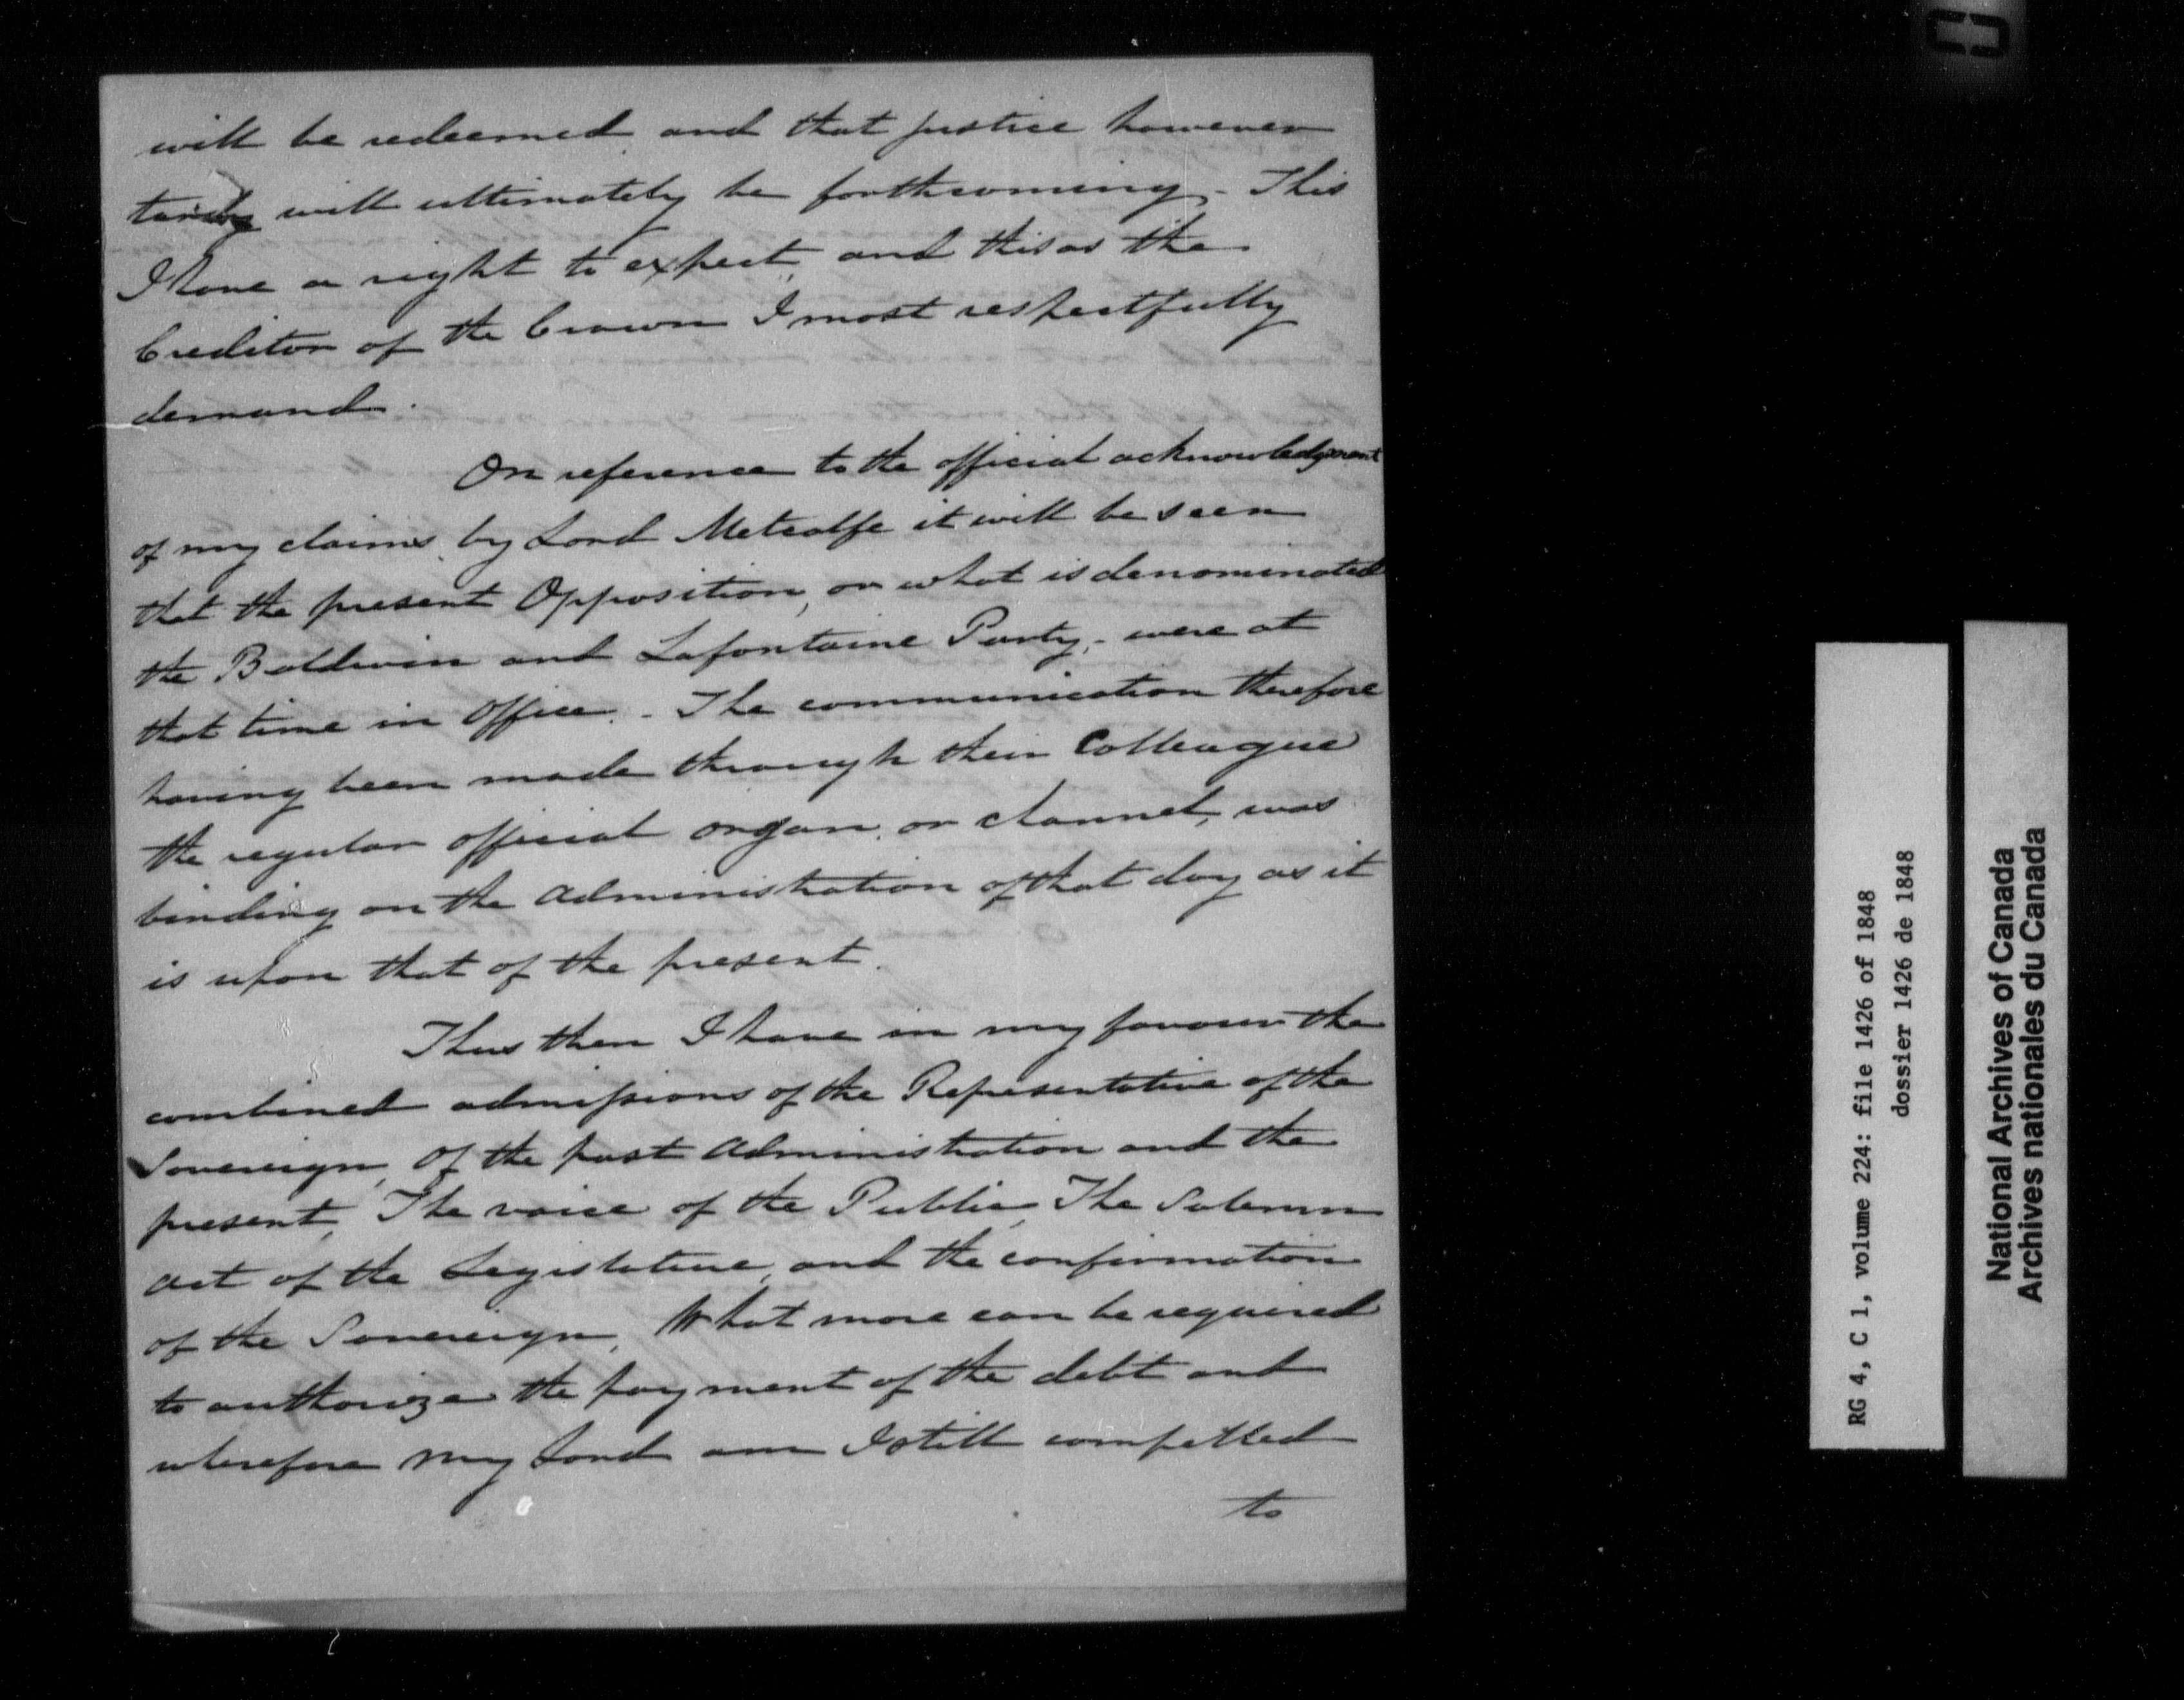 will be redeemed and that justice however
tardy will ultimately be forthcoming - This
I have a right to expect, and this as the
Creditor of the Crown I most respectfully
demand.
On reference to the official acknowledgment
of my claims by Lord Metcalfe it will be seen
that the present Opposition, or what is denominated
the Baldwin and Lafontaine Party, - were at
that time in Office. - The communication therefore
having been made through their Colleague
the regular official organ, or channel, was
binding on the Administration of that day as it
is upon that of the present.
Thus then I have in my favour the
combined admissions of the Representative of the
Sovereign, Of the past Administration and the
present, The voice of the Public, The Solemn
act of the Legislature, and the confirmation
of the Sovereign. What more can be required
to authorize the payment of the debt and
wherefore my Lord am I still compelled
to
RG 4, C 1, volume 224: file 1426 of 1848
dossier 1426 de 1848
National Archives of Canada
Archives nationales du Canada